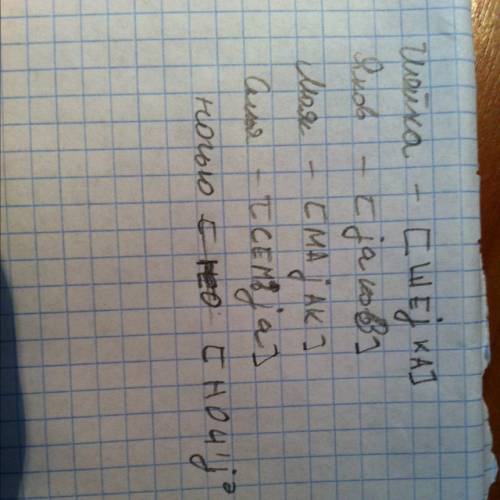 Шейка - [ШЕjКА]
Яков - [jаков]
Маяк - [МАjАК]
Семья - [СЕМЬjа]
ночью [НОЧ'j